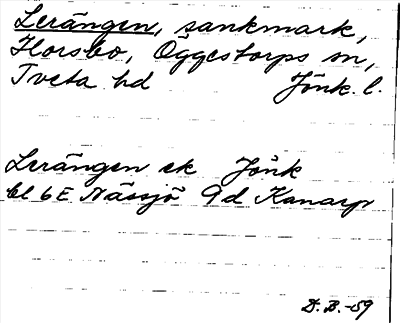 Lerängen, sankmark,
Horsbo, Öggestorps sn,
Tveta hd Jönk. l.
Lerängen ek Jönk
bl 6E Nässjö 9d Kanarp
D.B.-59